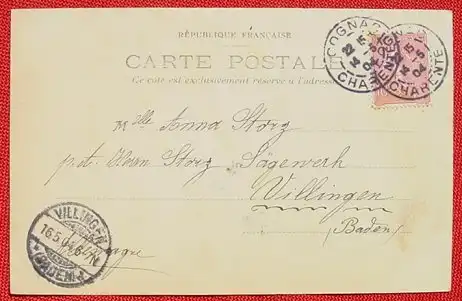 RÉPUBLIQUE FRANÇAISE
CARTE POSTALE
Ce côté est exclusivement réservé à l'adresse
COGNAC
CHARENTE
CHARENTE
Mlle Anna Storz
Storz, Sägewerk
Villingen
(Baden)
VILLINGEN
16.5.04
(BADEN)